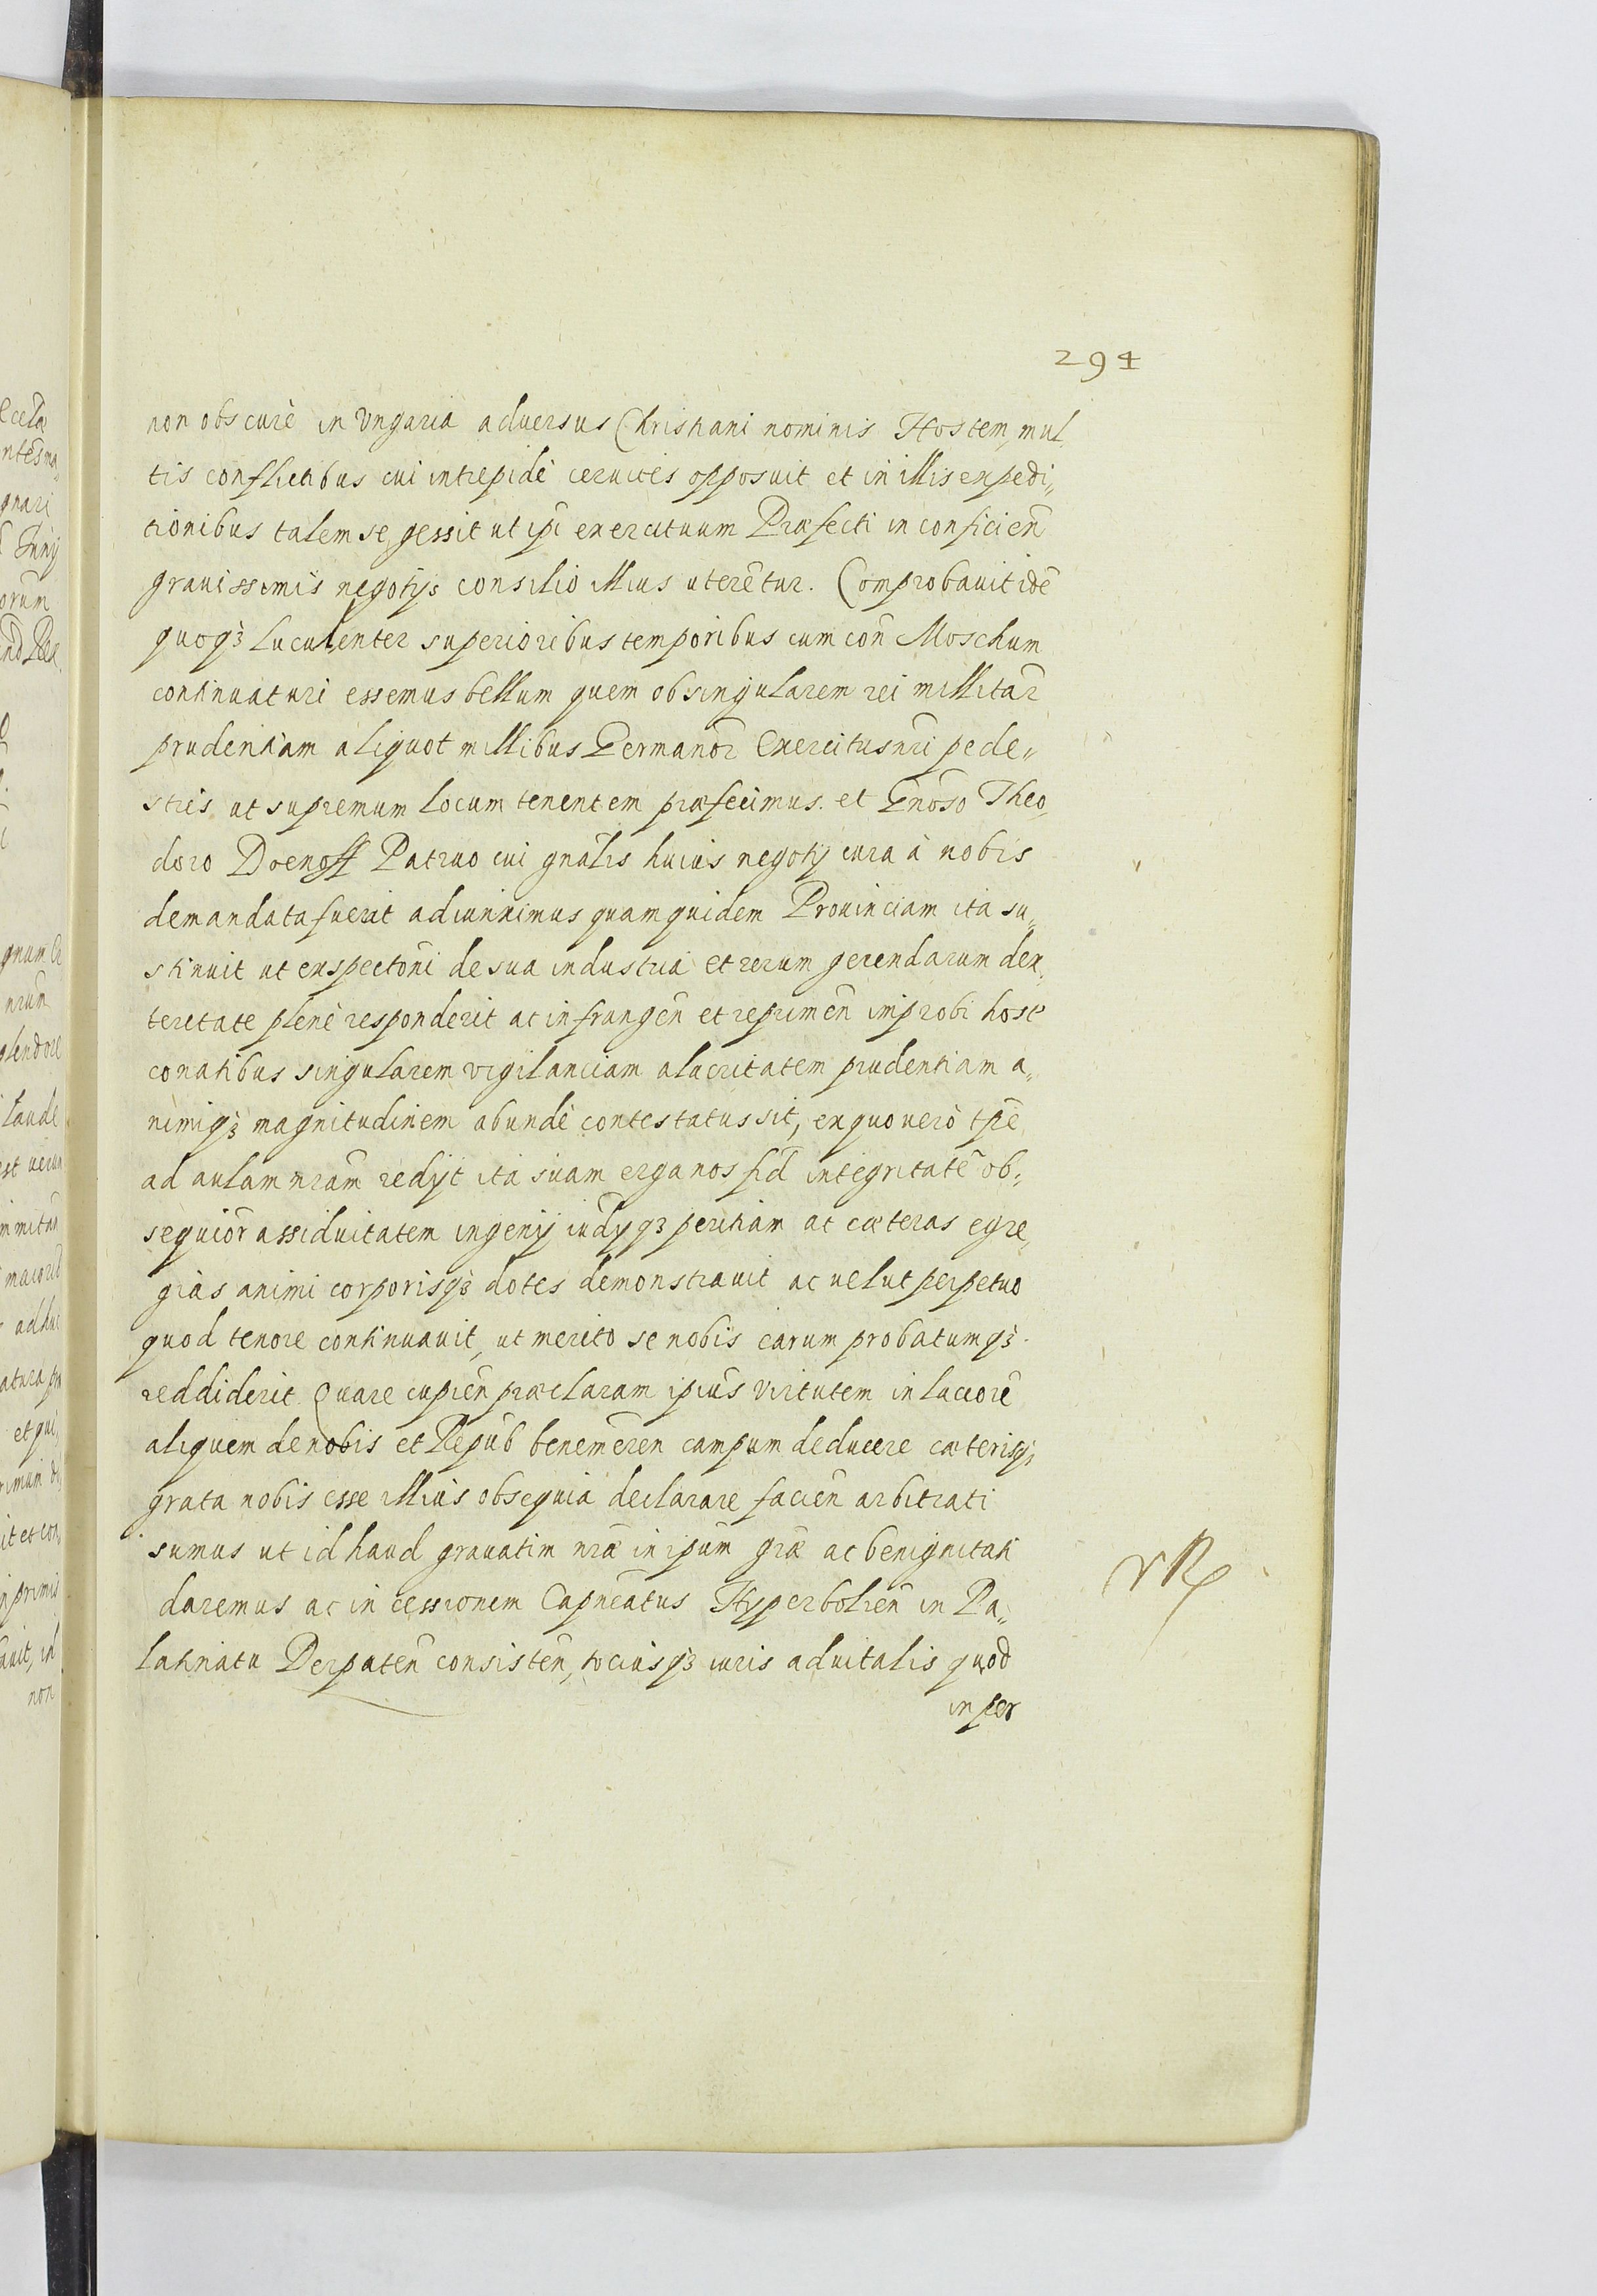 294
non obscurè in Ungaria aduersus Christiani nominis Hostem mul,
tis conflictibus cui intrepidè ceruices opposuit et in illis expedi„
tionibus talem se gessit ut ipī exercituum Præfecti in conficien̄
grauissimis negotijs consilio illius uterētur. Comprobauit idē
quoqꝫ luculenter superioribus temporibus cum con̄ Moschum
continuaturi essemus bellum quem ob singularem rei millitar̄
prudentiam aliquot millibus Germanor̄ Exercitus nr̄i pede„
stris ut supremum locum tenentem præfecimus. et Gn̄oso Theo„
doro Doenoff Patruo cui gn̄alis huius negotij cura à nobis
demandata fuerit adiunximus quam quidem Prouinciam ita su„
stinuit ut expectōni de sua industria et rerum gerendarum dex„
teritate plenè responderit ac in frangen̄ et reprimen̄ improbi host̄
conatibus singularem vigilanciam alacritatem prudentiam a„
nimiqꝫ magnitudinem abundè contestatus sit, ex quo verò tp̄e
ad aulam nr̄am redijt ita suam erga nos fid̄ integritatē ob„
sequior̄ assiduitatem ingenij iud̄yqꝫ peritiam ac cæteras egre„
gias animi corporisqꝫ dotes demonstrauit ac uelut perpetuo
quod tenore continuauit, ut merito se nobis carum probatumqꝫ
reddiderit. Quare cupien̄ præclaram ipīus virtutem in laciorē
aliquem de nobis et Repub̄ benemeren̄ campum deducere cæterisqꝫ
grata nobis esse illius obsequia declarare facien̄ arbitrati
sumus ut id haud grauatim nr̄æ in ipūm gr̄æ ac benignitati
daremus ac in cessionem Capn̄eatus Hyperbolien̄ in Pa„
latinatu Derpaten̄ consisten̄, tociusqꝫ iuris aduitalis quod
in per